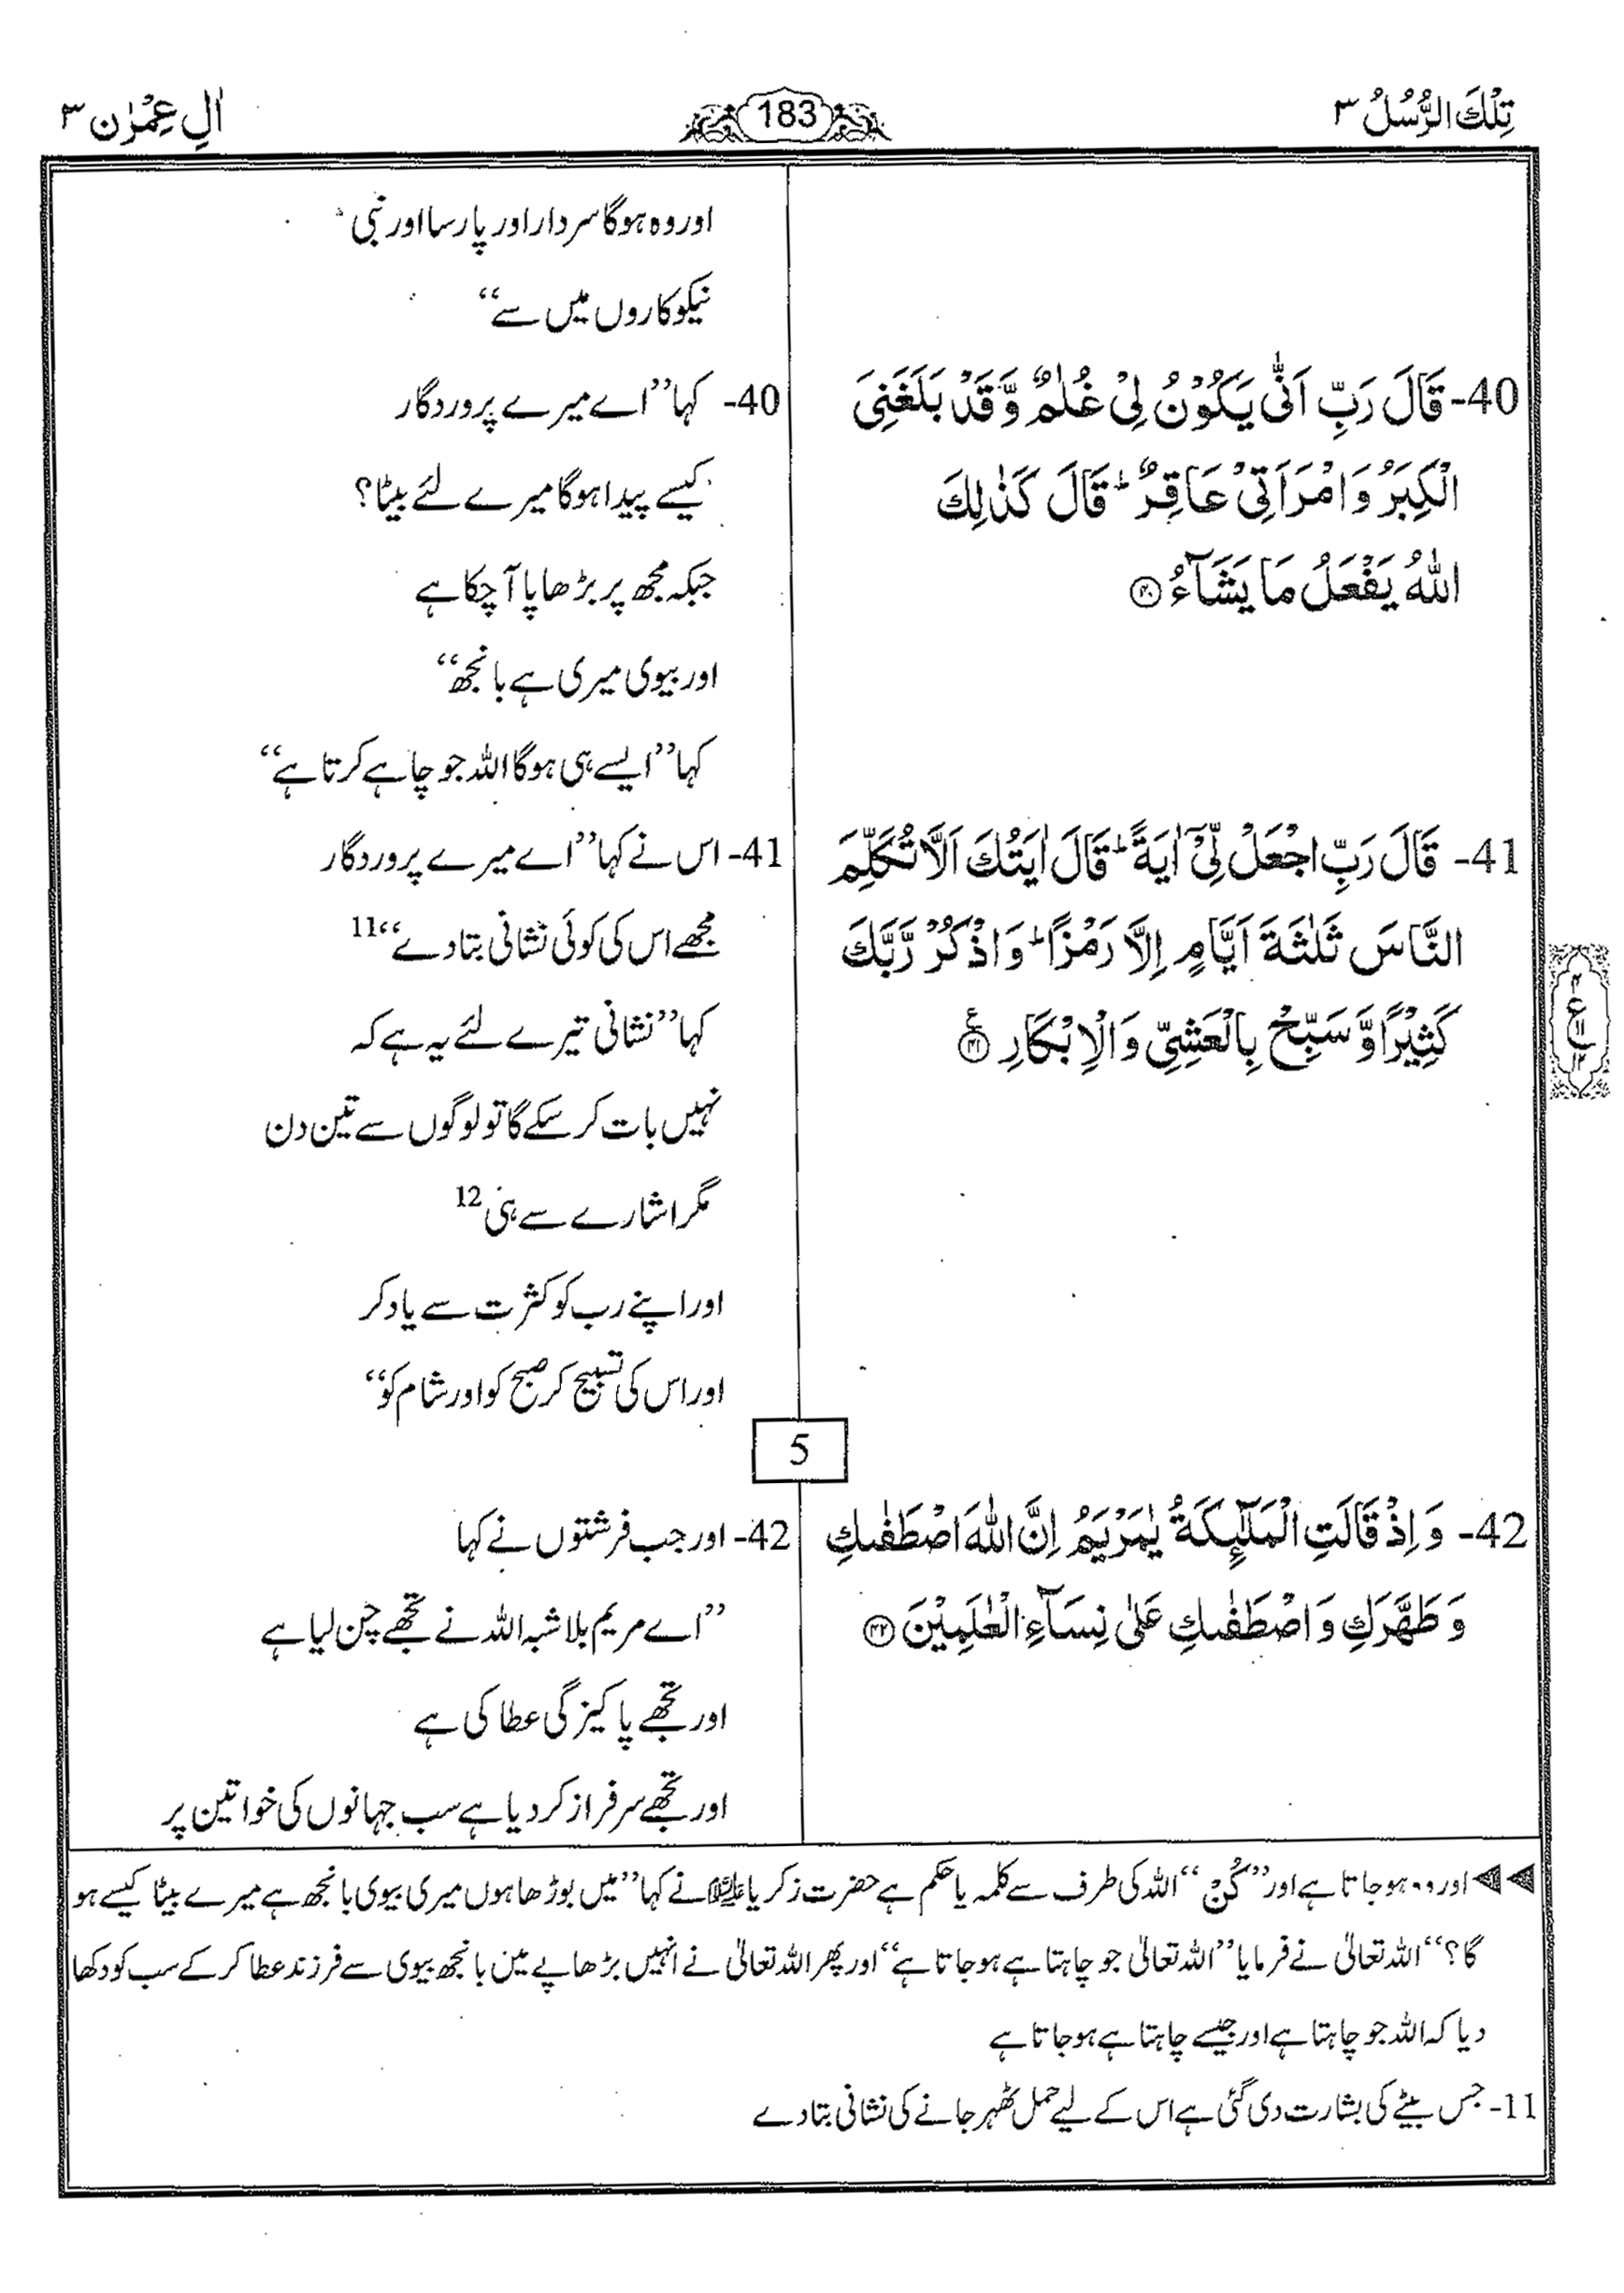 تِلْكَ الرُّسُلُ ٣
183
اٰلِ عِمْرٰن ٣
40- قَالَ رَبِّ اَنّٰى يَكُوْنُ لِىْ غُلٰمٌ وَّقَدْ بَلَغَنِىَ
الْكِبَرُ وَامْرَاَتِىْ عَاقِرٌ ؕ قَالَ كَذٰلِكَ
اللّٰهُ يَفْعَلُ مَا يَشَآءُ ۝٤٠
41- قَالَ رَبِّ اجْعَلْ لِّىْۤ اٰيَةً ؕ قَالَ اٰيَتُكَ اَلَّا تُكَلِّمَ
النَّاسَ ثَلٰثَةَ اَيَّامٍ اِلَّا رَمْزًا ؕ وَاذْكُرْ رَّبَّكَ
كَثِيْرًا وَّسَبِّحْ بِالْعَشِىِّ وَالْاِبْكَارِ ۝٤١ ع
٤
ع
١١
١٢
اور وہ ہوگا سردار اور پارسا اور نبی
نیکوکاروں میں سے“
40- کہا ”اے میرے پروردگار
کیسے پیدا ہوگا میرے لئے بیٹا؟
جبکہ مجھ پر بڑھاپا آ چکا ہے
اور بیوی میری ہے بانجھ“
کہا ”ایسے ہی ہوگا اللہ جو چاہے کرتا ہے“
41- اس نے کہا ”اے میرے پروردگار
مجھے اس کی کوئی نشانی بتا دے“ 11
کہا ”نشانی تیرے لئے یہ ہے کہ
نہیں بات کر سکے گا تو لوگوں سے تین دن
مگر اشارے سے ہی 12
اور اپنے رب کو کثرت سے یاد کر
اور اس کی تسبیح کر صبح کو اور شام کو“
5
42- وَاِذْ قَالَتِ الْمَلٰٓئِكَةُ يٰمَرْيَمُ اِنَّ اللّٰهَ اصْطَفٰىكِ
وَطَهَّرَكِ وَاصْطَفٰىكِ عَلٰى نِسَآءِ الْعٰلَمِيْنَ ۝٤٢
42- اور جب فرشتوں نے کہا
”اے مریم بلاشبہ اللہ نے تجھے چن لیا ہے
اور تجھے پاکیزگی عطا کی ہے
اور تجھے سرفراز کر دیا ہے سب جہانوں کی خواتین پر
◀◀ اور وہ ہو جاتا ہے اور ”کُنْ“ اللہ کی طرف سے کلمہ یا حکم ہے حضرت زکریا علیہ السلام نے کہا ”میں بوڑھا ہوں میری بیوی بانجھ ہے میرے بیٹا کیسے ہو
گا؟“ اللہ تعالیٰ نے فرمایا ”اللہ تعالیٰ جو چاہتا ہے ہو جاتا ہے“ اور پھر اللہ تعالیٰ نے انہیں بڑھاپے میں بانجھ بیوی سے فرزند عطا کر کے سب کو دکھا
دیا کہ اللہ جو چاہتا ہے اور جیسے چاہتا ہے ہو جاتا ہے
11- جس بیٹے کی بشارت دی گئی ہے اس کے لیے حمل ٹھہر جانے کی نشانی بتا دے